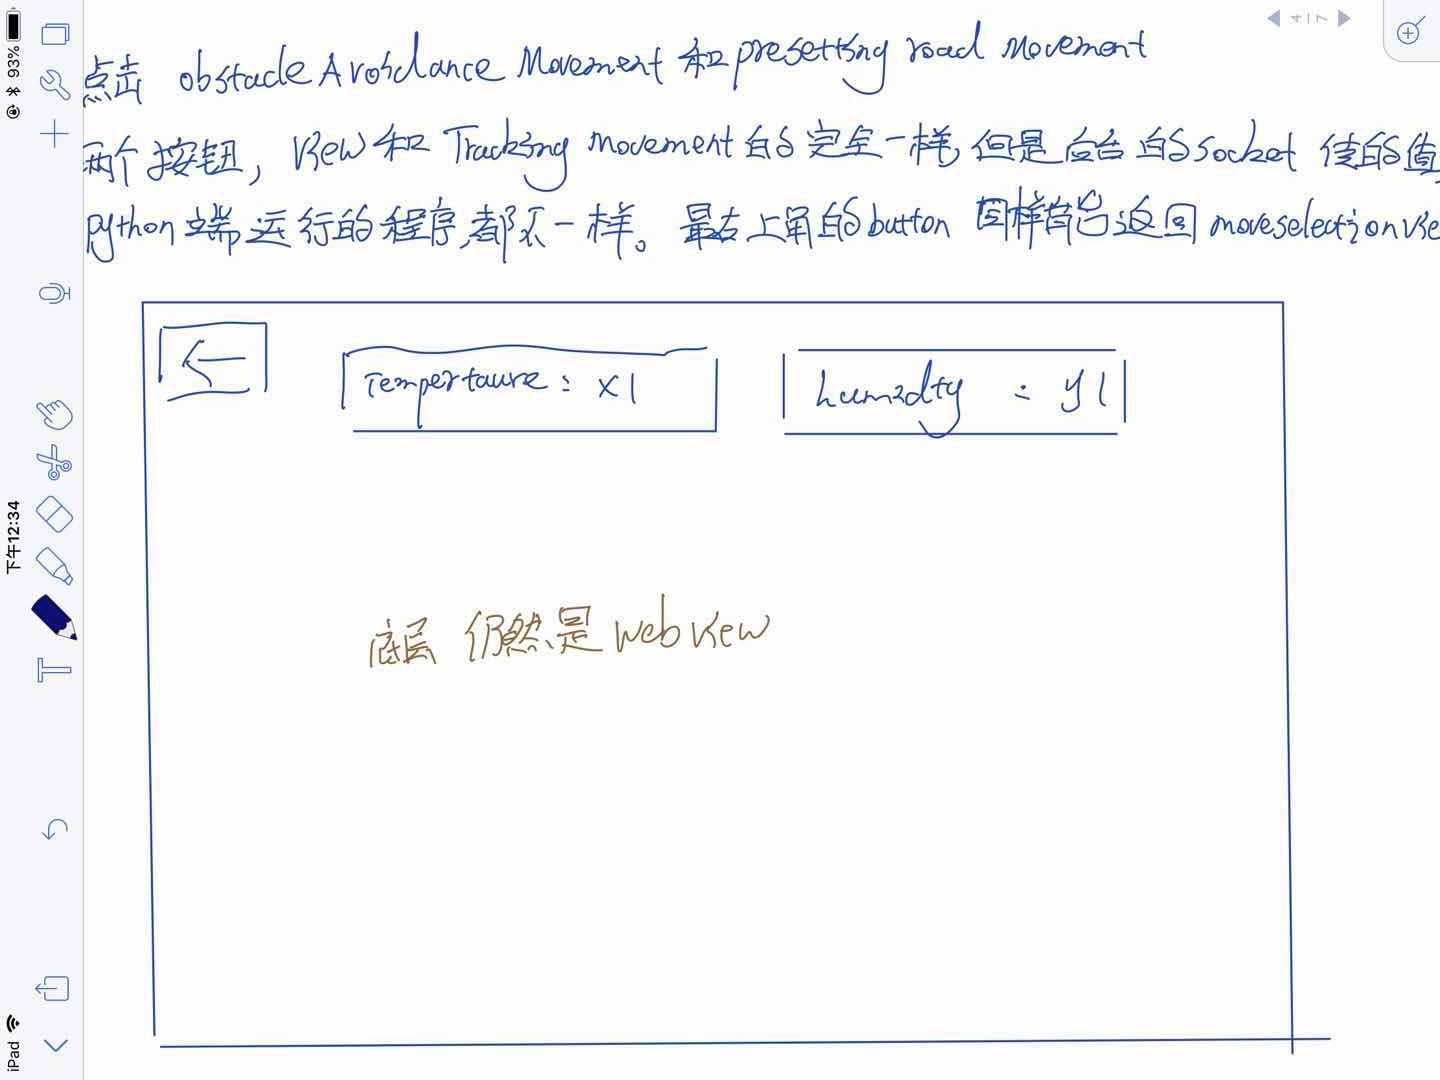 点击 obstacle Avoidance Movement 和 presetting road Movement
两个按钮，View 和 Tracking movement 的 完全一样，但是 后台 的 Socket 传的值，
python 端 运行的程序，都不一样。最左上角的 button 同样能 返回 moveselectionVie
←
Tempertaure : x1
humidty : y1
底层 仍然是 web View
93%
下午12:34
iPad
4 | 7
T